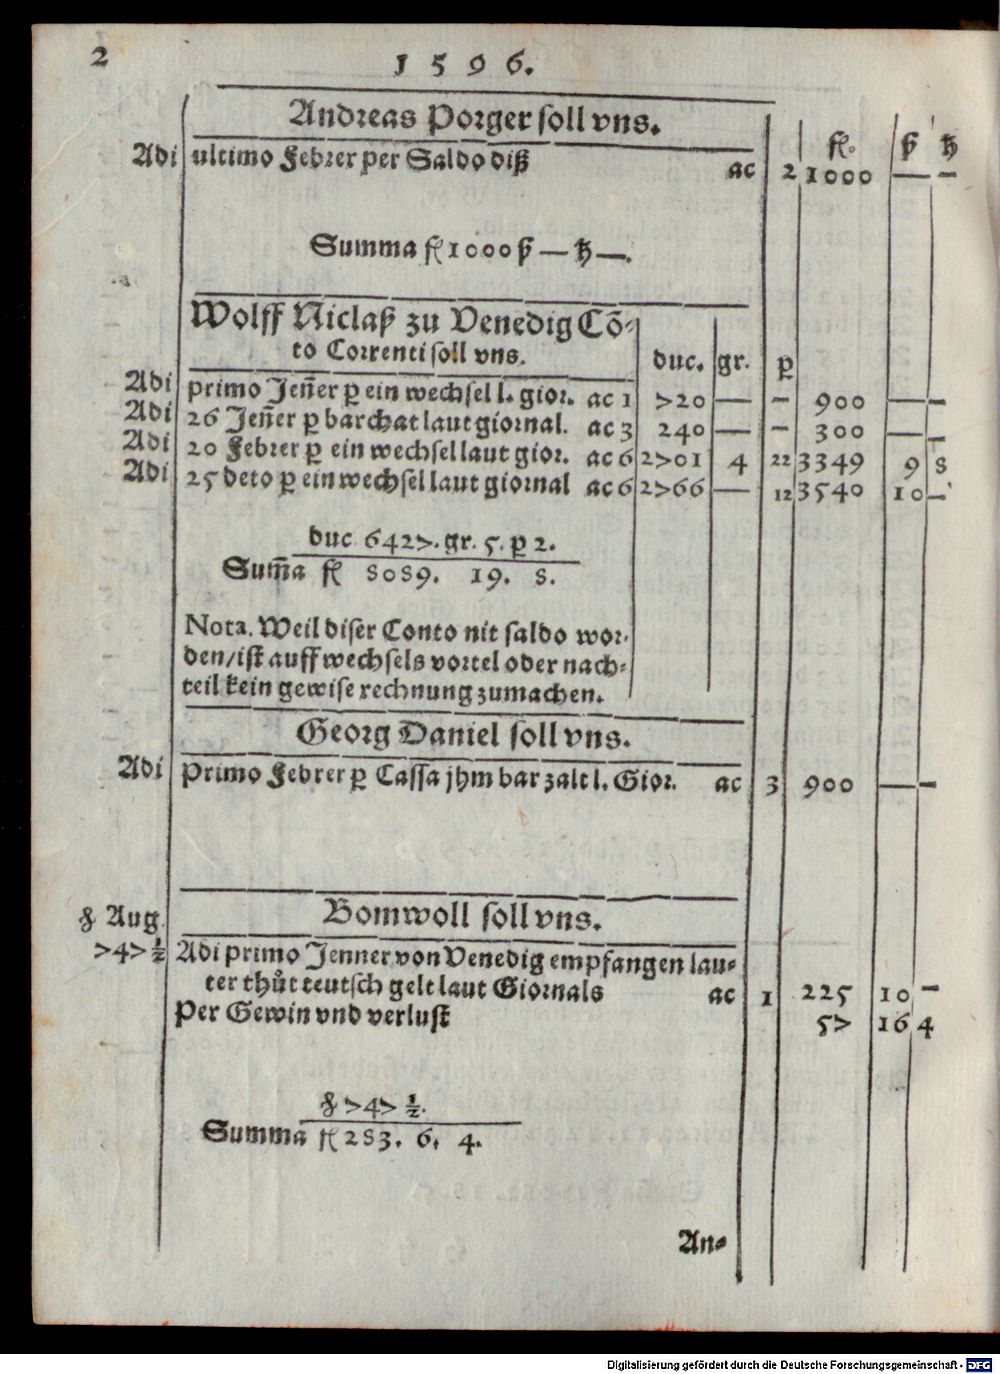 2
1596.
Andreas Porger soll vns.
fl. ß ₰
Adi ultimo Febrer per Saldo diß ac 2 1000 — —
Summa fl 1000 ß — ₰ —.
Wolff Niclaß zu Venedig Cõ-
to Correnti soll vns. duc. gr. p
Adi primo Jeñer p ein wechsel l. gior. ac 1 720 — – 900 — –
Adi 26 Jeñer p barchat laut giornal. ac 3 240 — – 300 — –
Adi 20 Febrer p ein wechsel laut gior. ac 6 2701 4 22 3349 9 8
Adi 25 deto p ein wechsel laut giornal ac 6 2766 — 12 3540 10 –
duc 6427. gr. 5. p 2.
Sum̃a fl 8089. 19. 8.
Nota. Weil diser Conto nit saldo wor-
den/ist auff wechsels vortel oder nach-
teil kein gewise rechnung zumachen.
Georg Daniel soll vns.
Adi Primo Febrer p Cassa jhm bar zalt l. Gior. ac 3 900 — –
Bomwoll soll vns.
₰ Aug.
747½ Adi primo Jenner von Venedig empfangen lau-
ter thůt teutsch gelt laut Giornals ac 1 225 10 –
Per Gewin vnd verlust 57 16 4
₰ 747 ½.
Summa fl 283. 6. 4.
An-
Digitalisierung gefördert durch die Deutsche Forschungsgemeinschaft - DFG